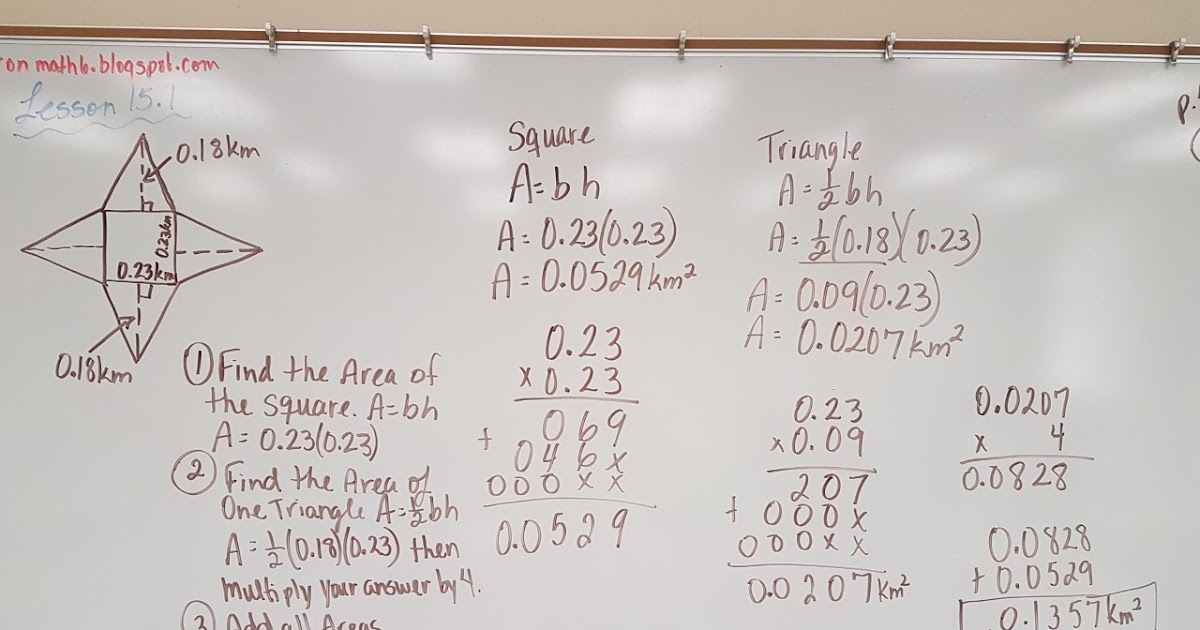 on math6.blogspot.com
Lesson 15.1
0.18km
0.23km
0.23km
0.18km
① Find the Area of
the square. A=bh
A = 0.23(0.23)
② Find the Area of
One Triangle A=½bh
A = ½(0.18)(0.23) then
multiply your answer by 4.
③ Add all Areas
Square
A=bh
A = 0.23(0.23)
A = 0.0529km²
0.23
x 0.23
069
+ 046x
000xx
0.0529
Triangle
A = ½bh
A = ½(0.18)(0.23)
A = 0.09(0.23)
A = 0.0207km²
0.23
x0.09
207
+ 000x
000xx
0.0207km²
0.0207
x 4
0.0828
0.0828
+ 0.0529
0.1357km²